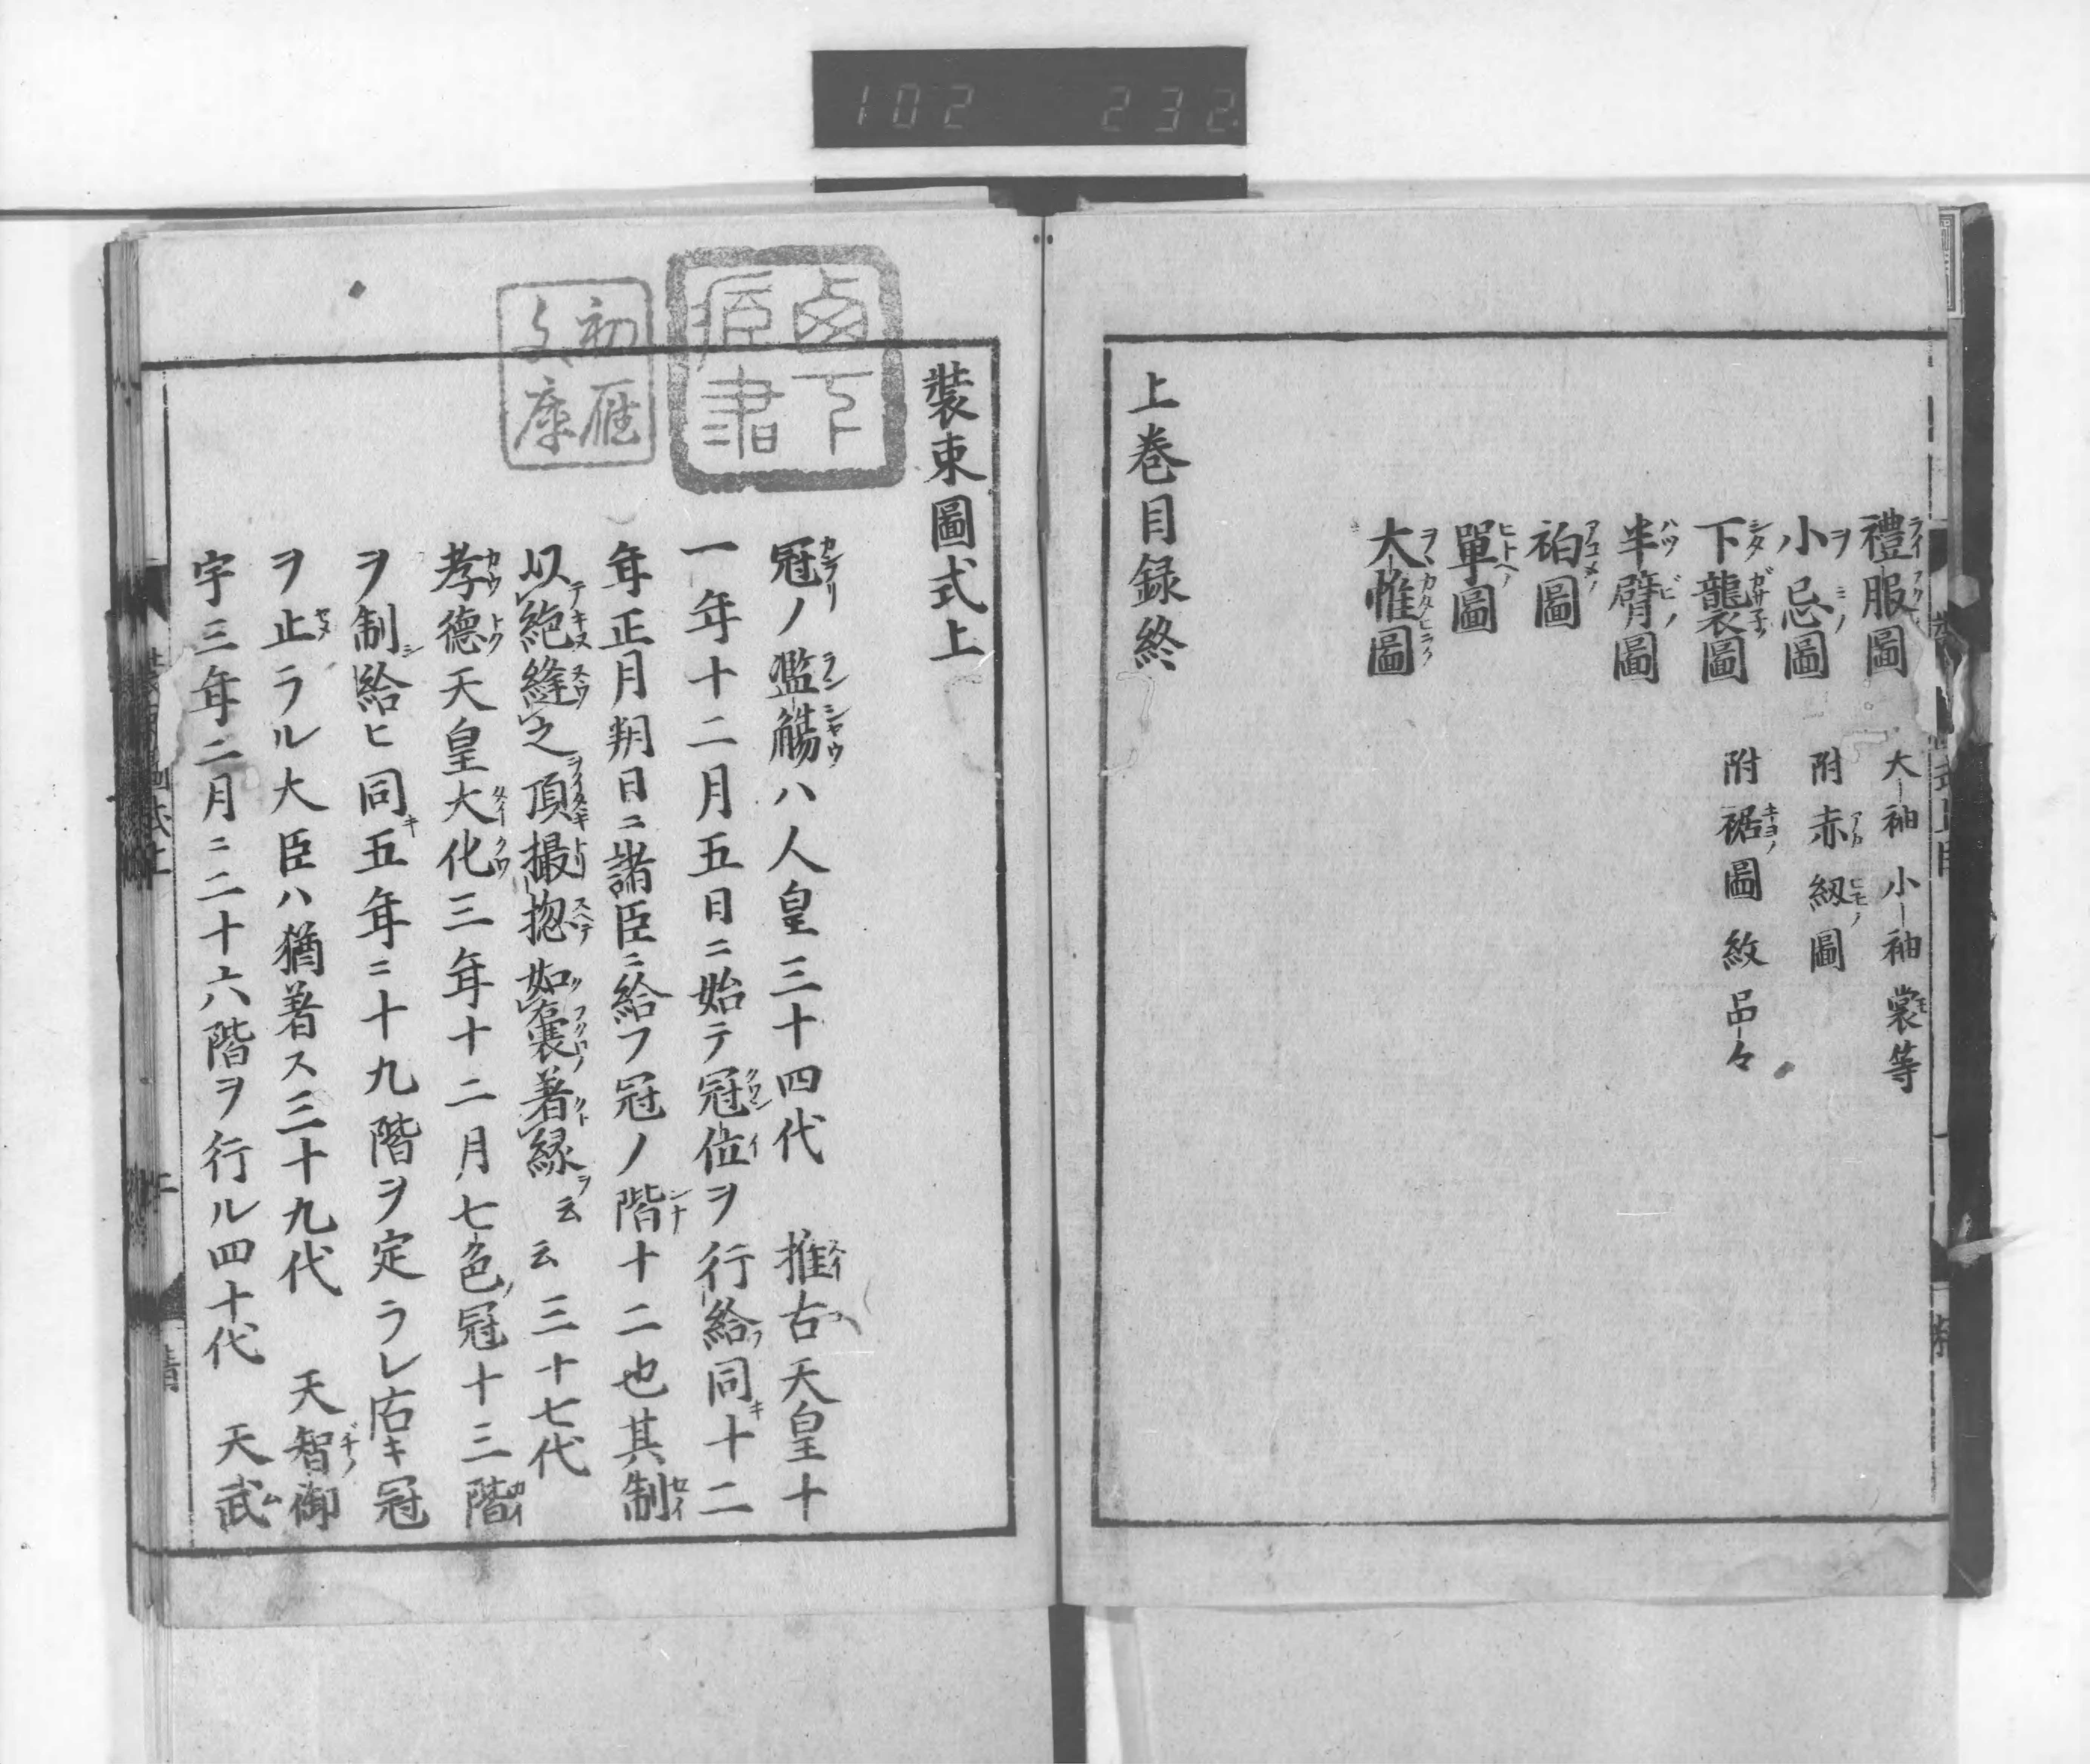 102 232
禮服圖 大袖 小袖 裳等
小忌圖 附赤紐圖
下襲圖 附裾圖 紋品々
半臂圖
袙圖
單圖
大帷圖
上巻目録終
裝束圖式上
冠ノ濫觴ハ人皇三十四代 推古天皇十
一年十二月五日ニ始テ冠位ヲ行給同十二
年正月朔日ニ諸臣ニ給フ冠ノ階十二也其制
以絁縫之頂撮揔如嚢著縁云云三十七代
孝德天皇大化三年十二月七色冠十三階
ヲ制給ヒ同五年ニ十九階ヲ定ラレ古キ冠
ヲ止ラル大臣ハ猶著ス三十九代 天智御
宇三年二月ニ二十六階ヲ行ル四十代 天武
初雁文庫